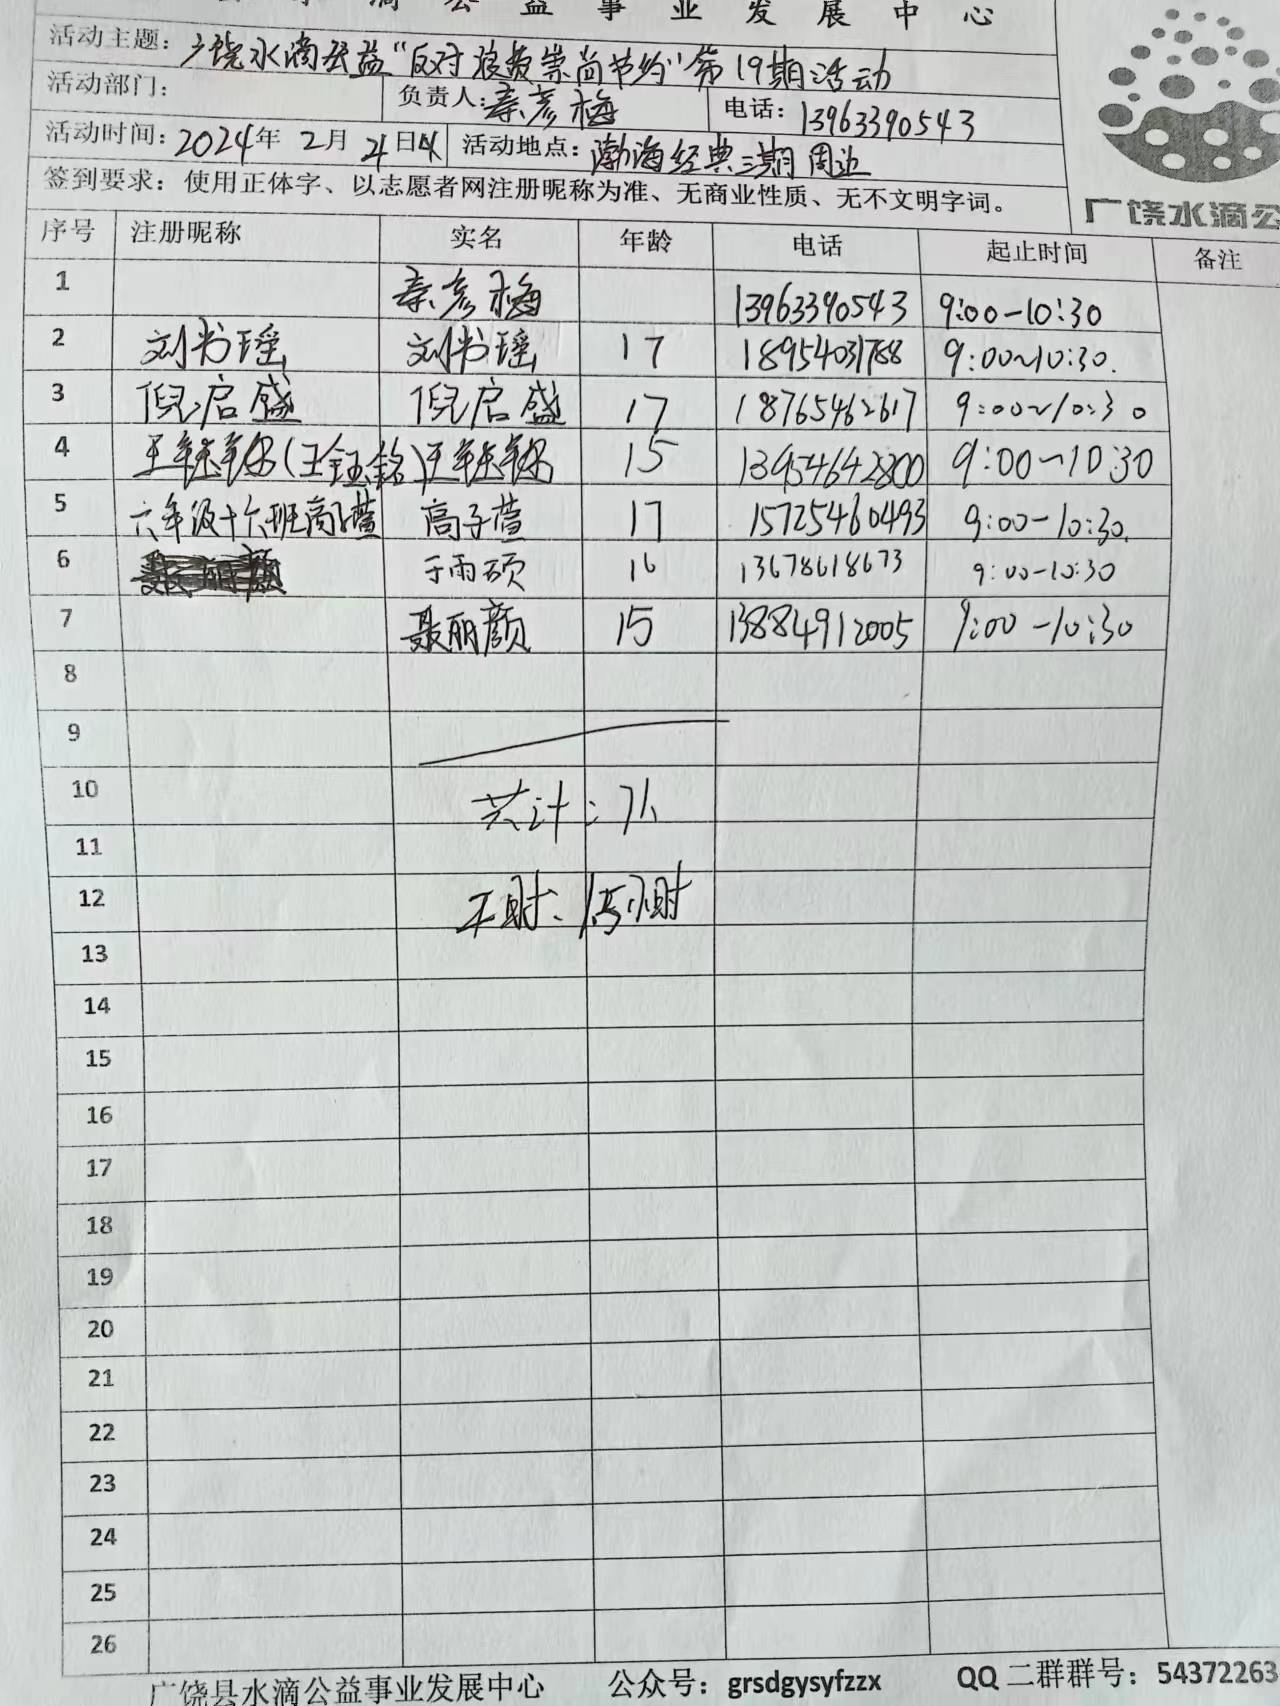 滴公益事业发展中心
活动主题：广饶水滴公益“反对浪费崇尚节约”第19期活动
活动部门： 负责人：秦彦梅 电话：13963390543
活动时间：2024年2月4日 活动地点：渤海经典三期周边
签到要求：使用正体字、以志愿者网注册昵称为准、无商业性质、无不文明字词。
广饶水滴公
序号 注册昵称 实名 年龄 电话 起止时间 备注
1 秦彦梅 13963390543 9:00-10:30
2 刘书瑶 刘书瑶 17 18954031788 9:00~10:30.
3 倪启盛 倪启盛 17 18765462617 9:00~10:30
4 王(王钰铭) 王 15 13954642800 9:00-10:30
5 六年级十六班高子萱 高子萱 17 15725460493 9:00-10:30.
6 于雨硕 16 13678618673 9:00-10:30
7 聂丽颜 15 13884912005 9:00-10:30
8
9
10 共计：7人
11
12 工时：1.5小时
13
14
15
16
17
18
19
20
21
22
23
24
25
26
广饶县水滴公益事业发展中心 公众号：grsdgysyfzzx QQ二群群号：54372263